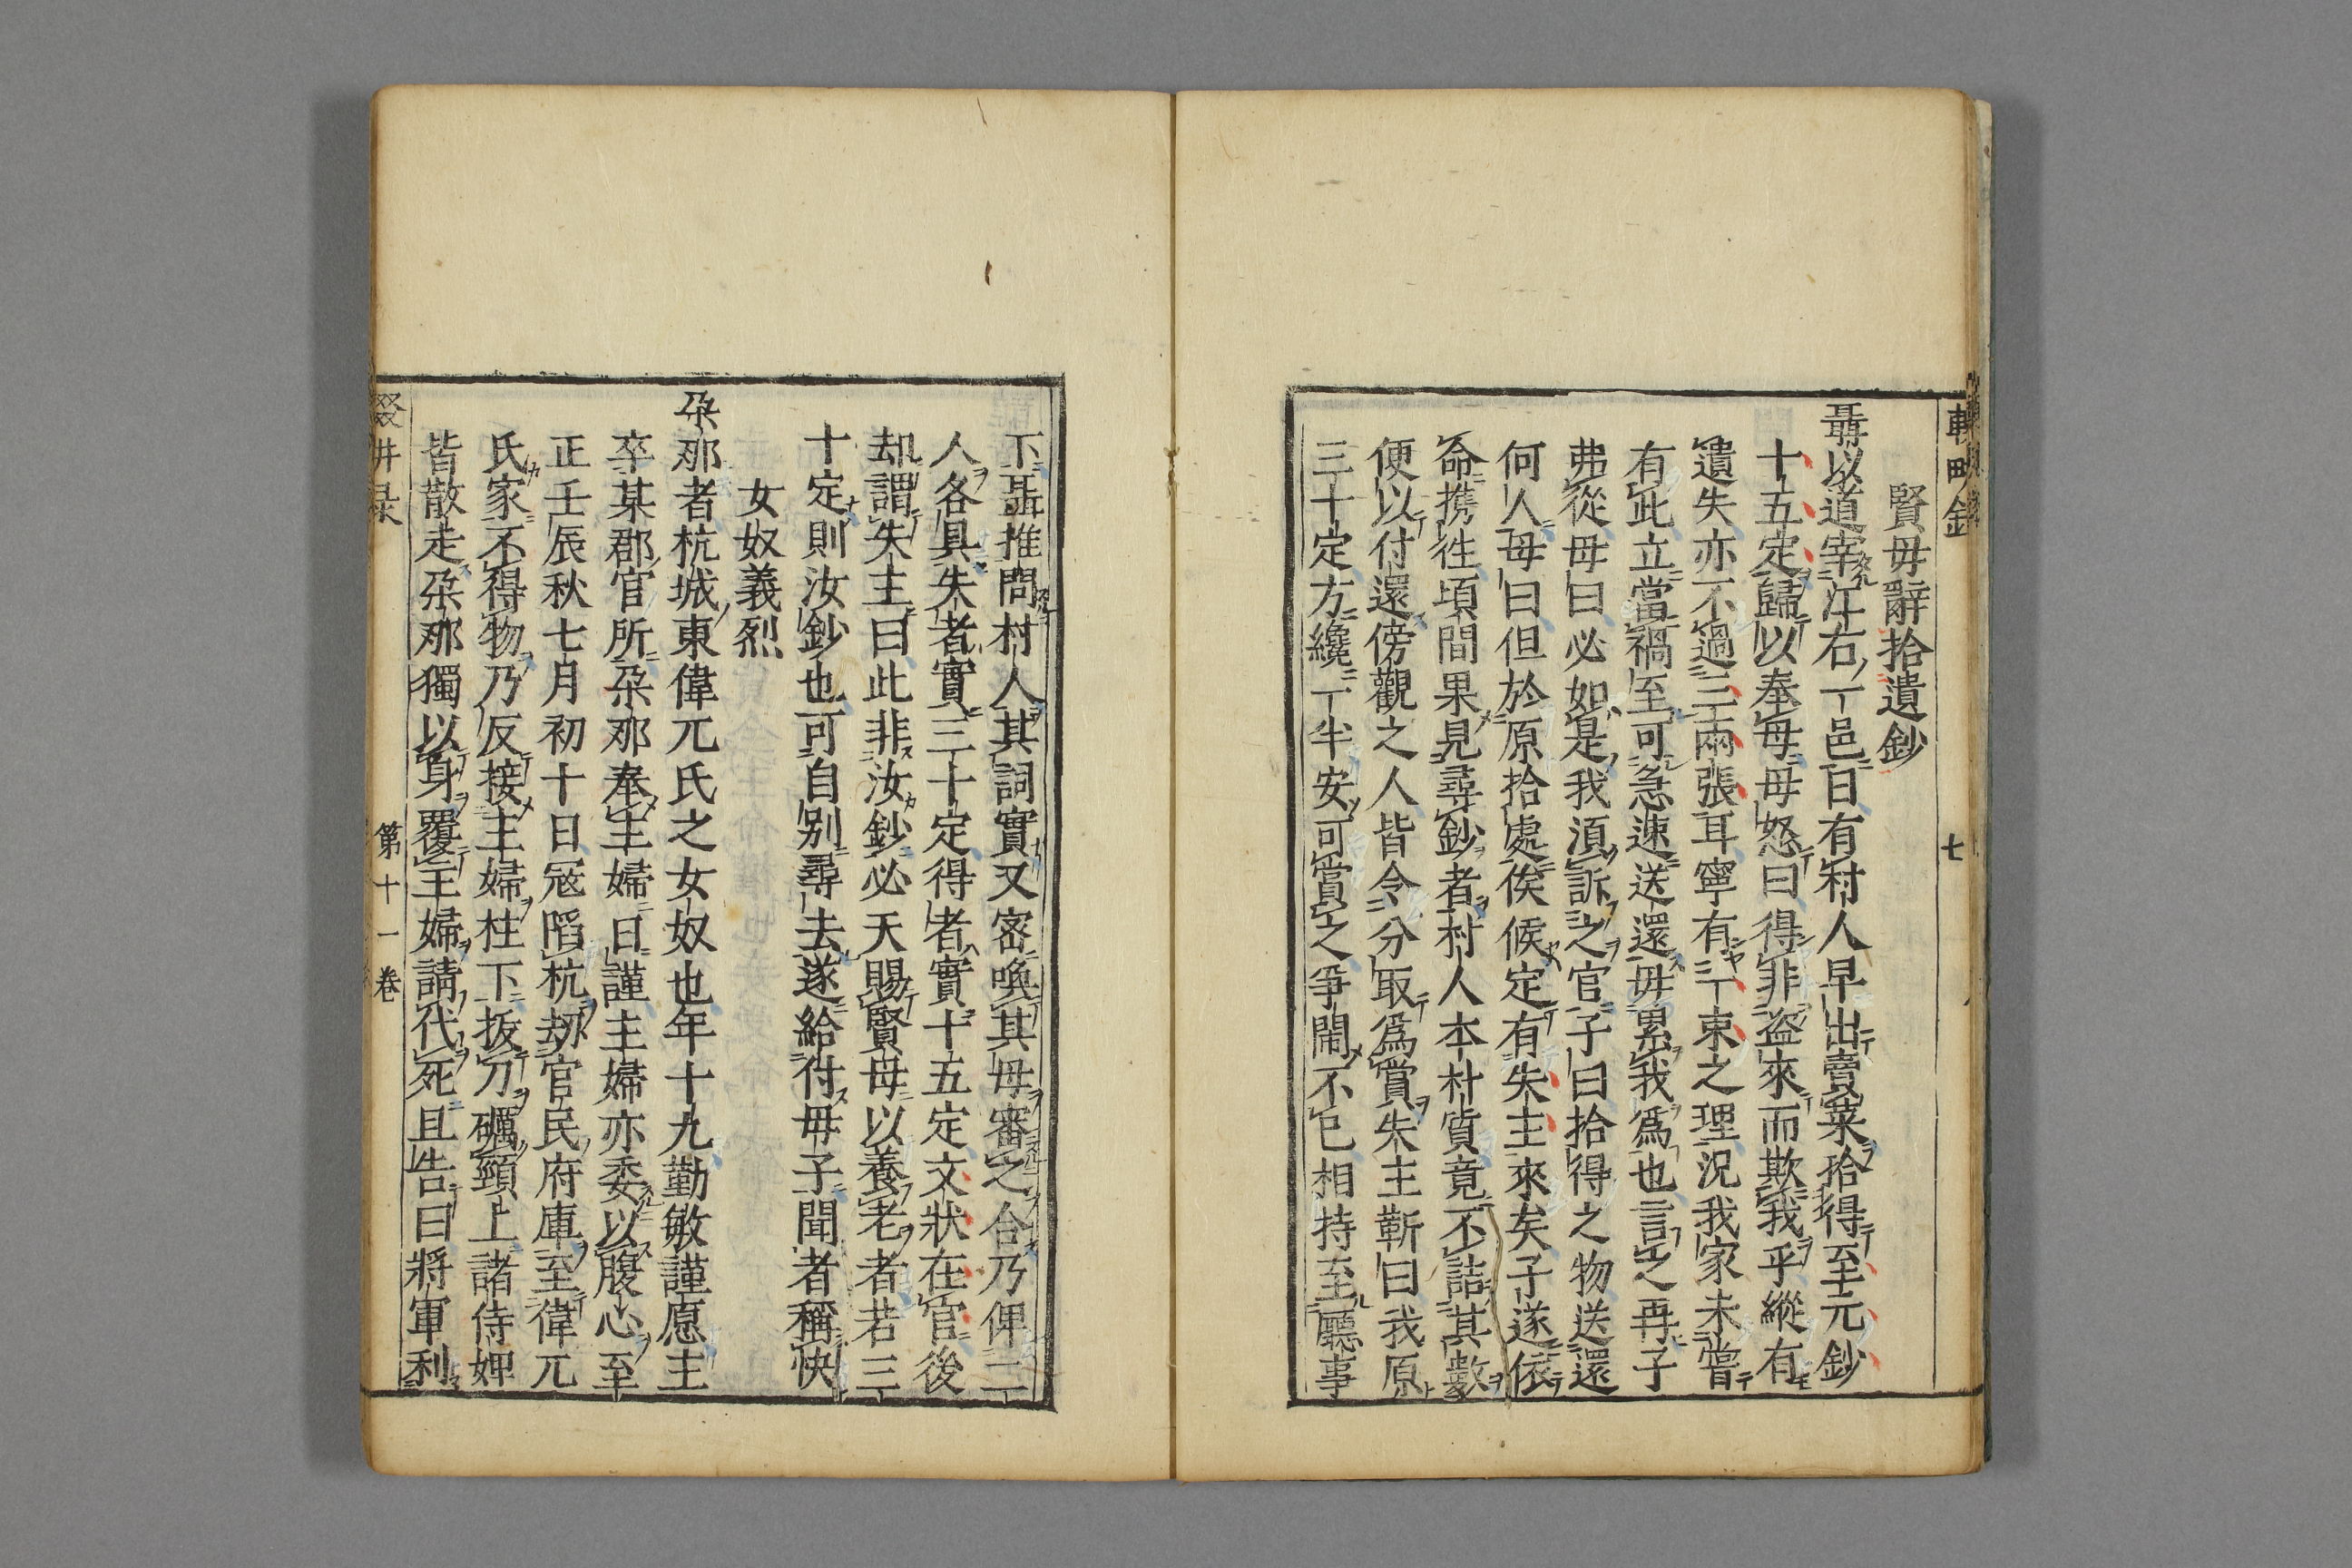 賢母辭拾遺鈔
聶以道宰江右一邑日有村人早出賣菜拾得至元鈔
十五定歸以奉母母怒曰得非盗來而欺我乎縱有
遺失亦不過三兩張耳寧有一束之理況我家未嘗
有此立當禍至可急速送還毋累我爲也言之再子
弗從母曰必如是我湏訴之官子曰拾得之物送還
何人母曰但於原拾處俟候定有失主來矣子遂依
命携徃頃間果見尋鈔者村人本朴質竟不詰其數
便以付還傍觀之人皆令分取爲賞失主靳曰我原
三十定方纔一半安可賞之爭鬧不已相持至廳事
七
下聶推問村人其詞實又密喚其母審之合乃俾二
人各具失者實三十定得者實十五定文狀在官後
却謂失主曰此非汝鈔必天賜賢母以養老者若三
十定則汝鈔也可自别尋去遂給付母子聞者稱快
女奴義烈
朶那者杭城東偉兀氏之女奴也年十九勤敏謹愿主
卒某郡官所朶那奉主婦日謹主婦亦委以腹心至
正壬辰秋七月初十日冦陷杭刼官民府庫至偉兀
氏家不得物乃反接主婦柱下扳刀礪頸上諸侍婢
皆散走朶那獨以身覆主婦請代死且告曰將軍利
第十一卷